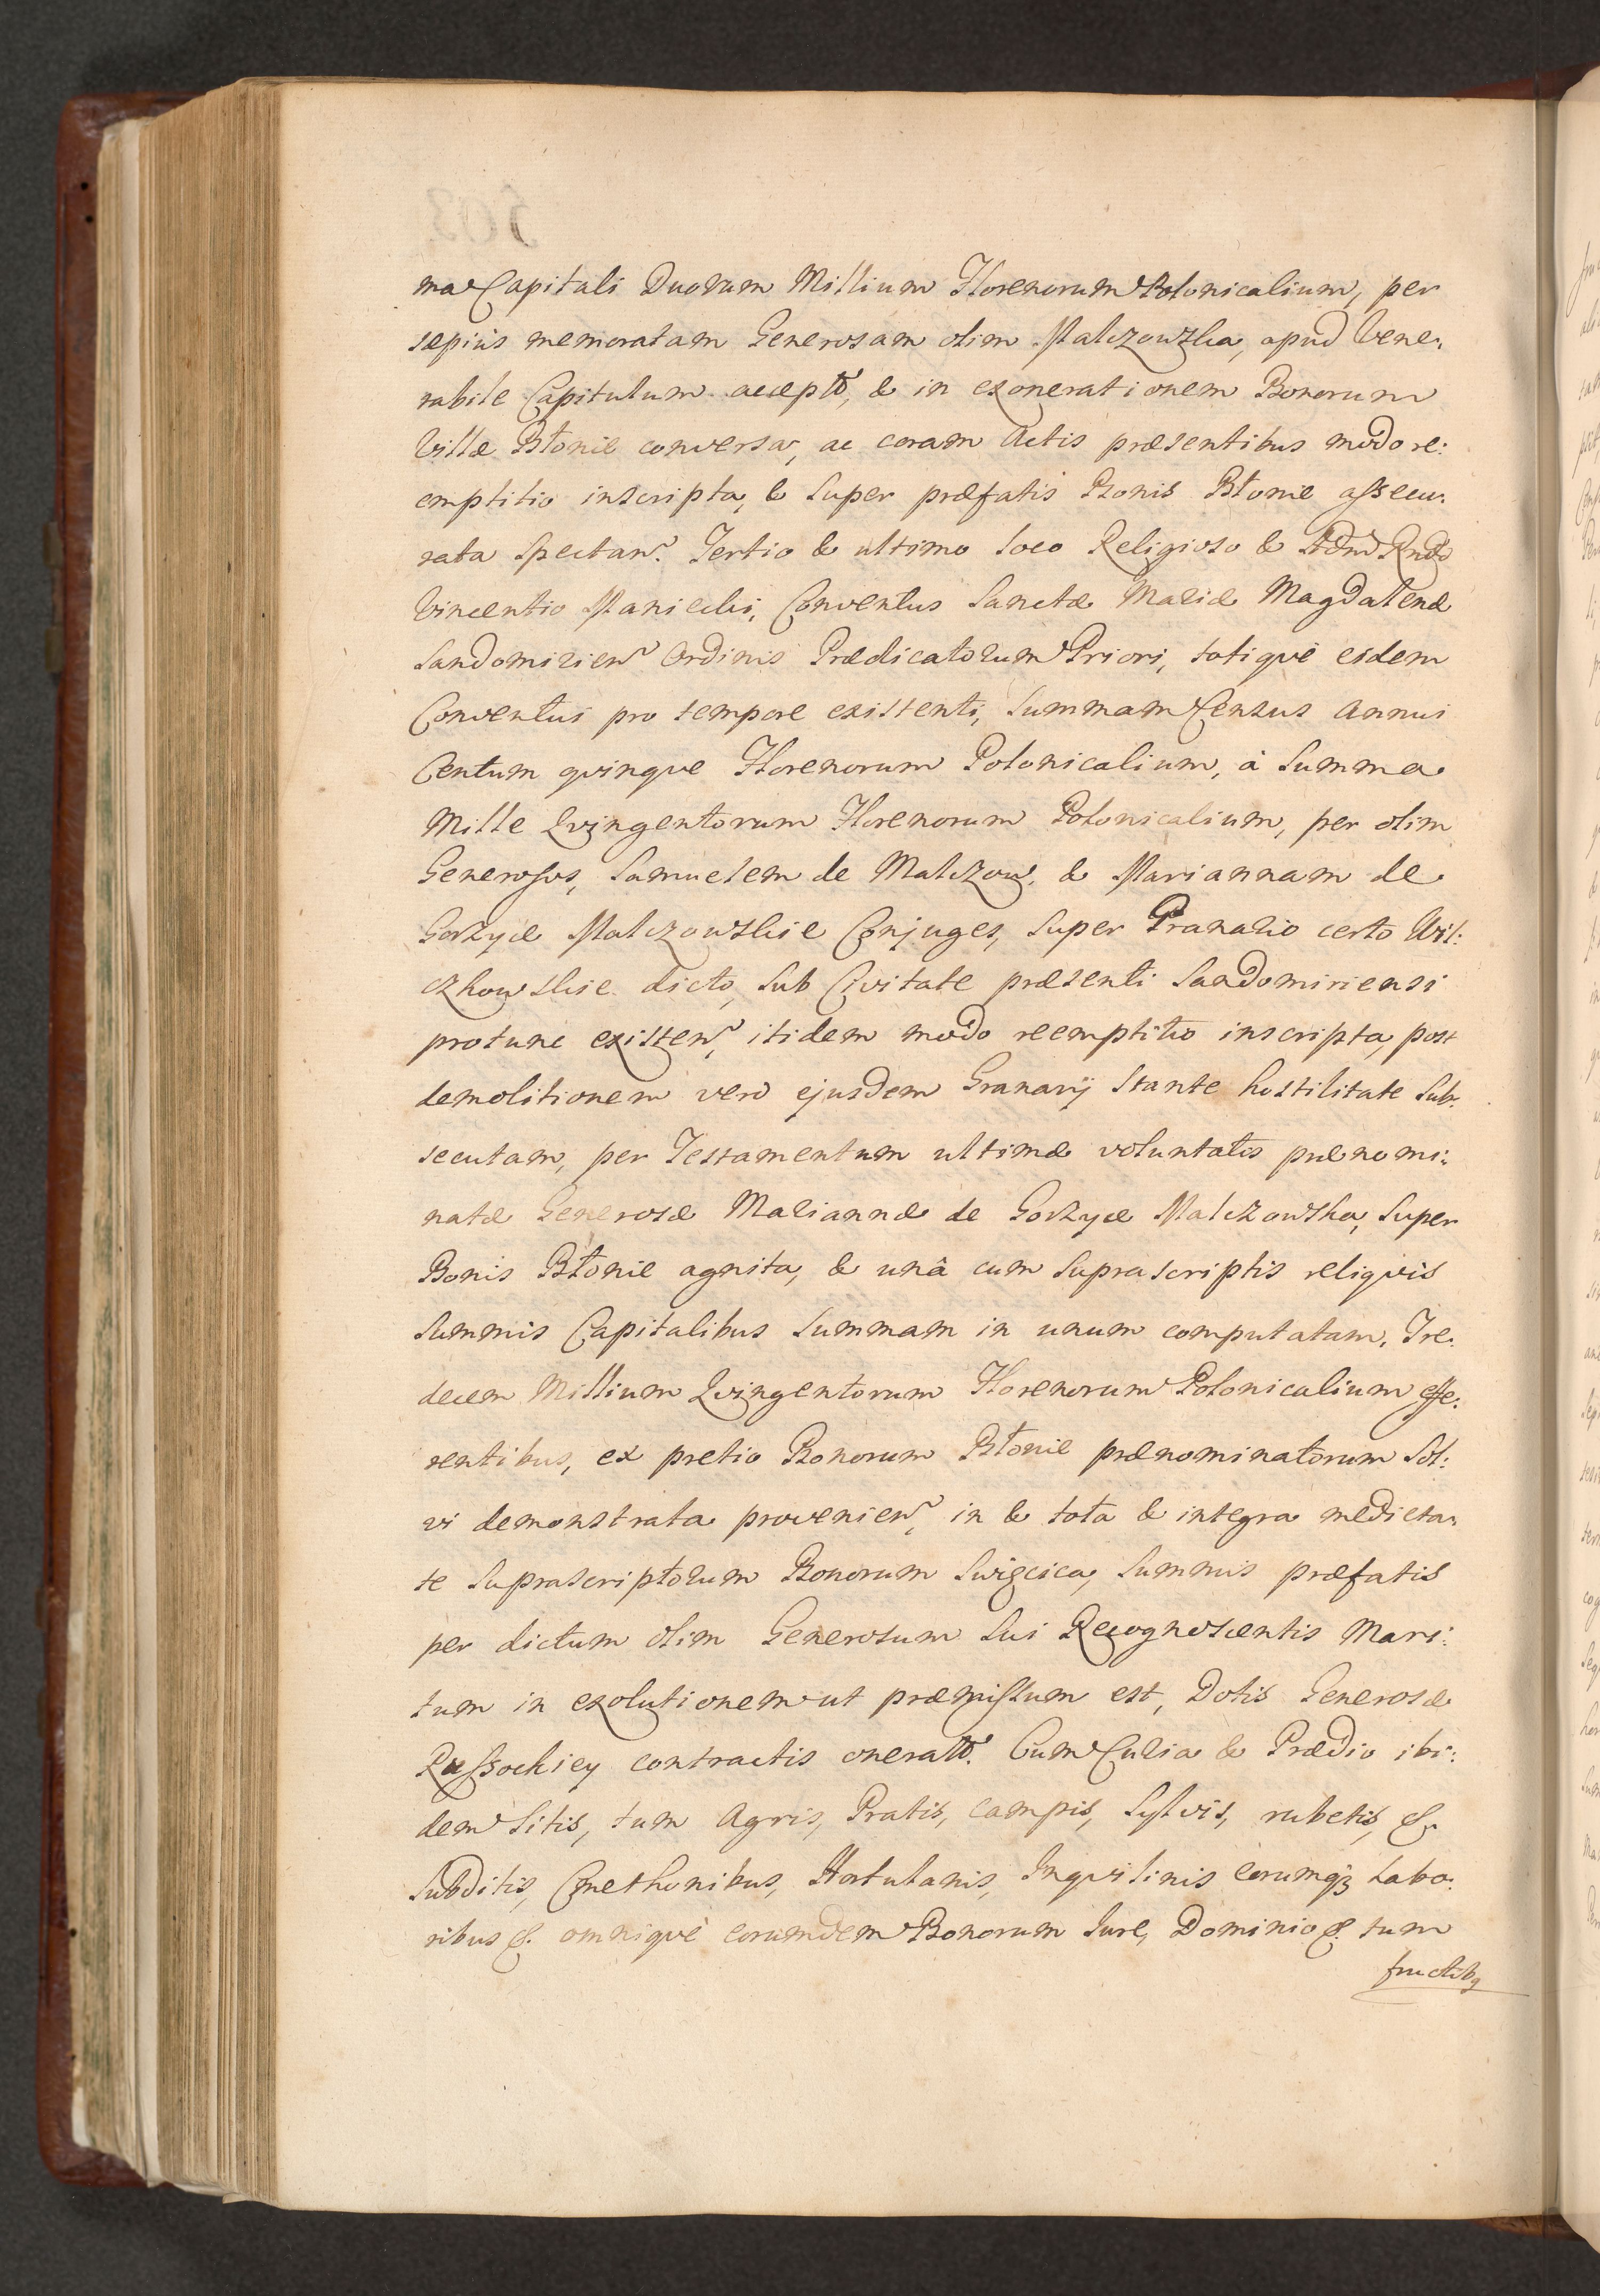 ma Capitali Duorum Millium Florenorum Polonicalium, per
sæpiùs memoratam Generosam olim Malczowska, apud Vene:
rabile Capitulum accept, & in exonerationem Bonorum
Villæ Błonie conversa, ac coram Actis præsentibus modo re:
emptitio inscripta, & super præfatis Bonis Błonie assecu:
rata Spectan. Tertio & ultimo loco Religioso & Rndo
Vincentio Conventus Sanctæ Mariæ Magdalenæ
Sandomirien Ordinis Prædicatorum Priori, totiquè eidem
Conventui pro tempore existenti, Summam Census Annui
Centum qvinqve Florenorum Polonicalium, à Summa
Mille Qvingentorum Florenorum Polonicalium, per olim
Generosos, Samuelem de Malczow, & Mariannam de
Gorzyce Malczowskie Conjuges, super Granario certo Wil:
czkowskie dicto, sub Civitate præsenti Sandomiriensi
protunc existen, itidem modo reemptitio inscripta, post
demolitionem vero ejusdem Granarij stante hostilitate sub:
secutam, per Testamentum ultimæ voluntatis prænomi:
natæ Generosæ Mariannæ de Gorzyce Malczowska, super
Bonis Błonie agnita, & unâ cum suprascriptis reliqvis
Summis Capitalibus Summam in unum computatam, Tre:
decem Millium Qvingentorum Florenorum Polonicalium effe:
rentibus, ex pretio Bonorum Błonie prænominatorum Sol:
vi demonstrata provenien, in & tota & integra medieta:
te suprascriptorum Bonorum Swięcica, Summis præfatis
per dictum olim Generosum sui Recognoscentis Mari:
tum in exolutionem ut præmissum est, Dotis Generosæ
Russockiey contractis onerat. Cum Curia & Prædio ibi:
dem sitis, tum Agris, Pratis, campis, Sylvis, rubetis, &
Subditis, Cmethonibus, Hortulanis, Inqvilinis eorumqȝ labo:
ribus &. omniquè eorumdem Bonorum Jure, Dominio &. tum
fructibꝯ